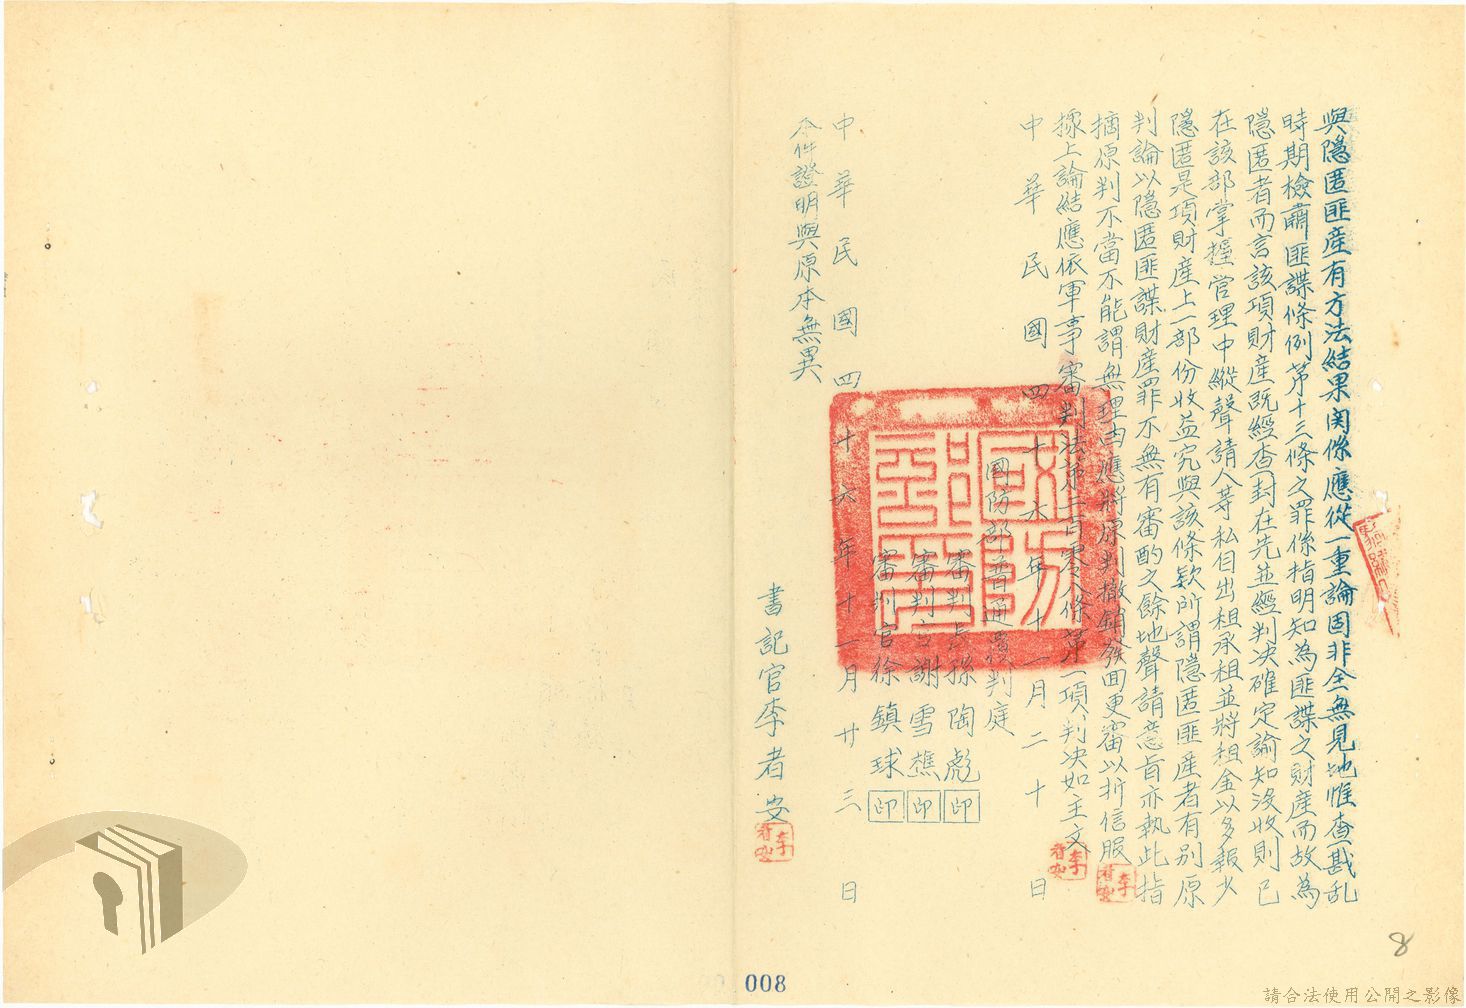 與隱匿匪產有方法結果関係應從一重論固非全無見地惟查戡乱
時期檢肅匪諜條例第十三條之罪係指明知為匪諜之財產而故為
隱匿者而言該項財產既經查封在先並經判决確定諭知沒收則已
在該部掌握官理中縱聲請人等私自出租承租並將租金以多報少
隱匿是項財產上一部份收益究與該條欵所謂隱匿匪產者有別原
判論以隱匿匪諜財產罪不無有審酌之餘地聲請意旨亦執此指
摘原判不當不能謂無理由應將原判撤銷發回更審以折信服
據上論結應依軍事審判法第二百零八條第一項判决如主文
中華民國四十六年十一月二十日
國防部普通覆判庭
審判長孫陶彪印
審判官謝雪樵印
審判官徐鎮球印
中華民國四十六年十一月廿三日
本件證明與原本無異
書記官李者安
國防部印
李者安
李者安
李者安
8
008
請合法使用公開之影像